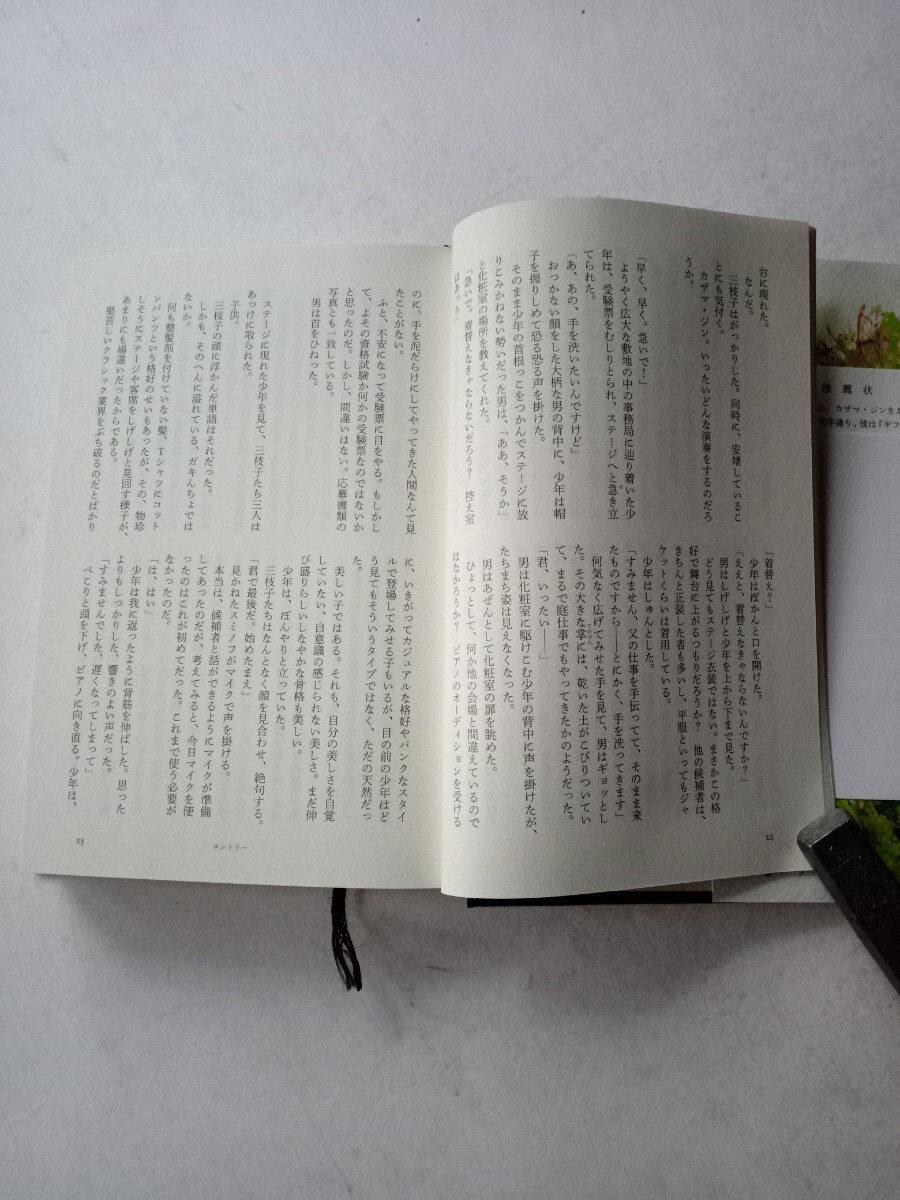 台に現れた。
なんだ。
三枝子はがっかりした。同時に、安堵しているこ
とにも気付く。
カザマ・ジン。いったいどんな演奏をするのだろ
うか。
「早く、早く。急いで！」
ようやく広大な敷地の中の事務局に辿り着いた少
年は、受験票をむしりとられ、ステージへと急き立
てられた。
「あ、あの、手を洗いたいんですけど」
おっかない顔をした大柄な男の背中に、少年は帽
子を握りしめて恐る恐る声を掛けた。
そのまま少年の首根っこをつかんでステージに放
りこみかねない勢いだった男は、「ああ、そうか」
と化粧室の場所を教えてくれた。
「急いで。着替えなきゃならないだろう？ 控え室
はあっ
「着替え？」
少年はぽかんと口を開けた。
「ええと、着替えなきゃならないんですか？」
男はしげしげと少年を上から下まで見た。
どう見てもステージ衣装ではない。まさかこの格
好で舞台に上がるつもりだろうか？ 他の候補者は、
きちんと正装した者も多いし、平服といってもジャ
ケットくらいは着用している。
少年はしゅんとした。
「すみません、父の仕事を手伝ってて、そのまま来
たものですから――とにかく、手を洗ってきます」
何気なく広げてみせた手を見て、男はギョッとし
た。その大きな掌には、乾いた土がこびりついてい
て、まるで庭仕事でもやってきたかのようだった。
「君、いったい――」
男は化粧室に駆けこむ少年の背中に声を掛けたが、
たちまち姿は見えなくなった。
男はあぜんとして化粧室の扉を眺めた。
ひょっとして、何か他の会場と間違えているので
はなかろうか？ ピアノのオーディションを受ける
12
のに、手を泥だらけにしてやってきた人間なんて見
たことがない。
ふと、不安になって受験票に目をやる。もしかし
て、よその資格試験か何かの受験票なのではないか
と思ったのだ。しかし、間違いはない。応募書類の
写真とも一致している。
男は首をひねった。
ステージに現れた少年を見て、三枝子たち三人は
あっけに取られた。
子供。
三枝子の頭に浮かんだ単語はそれだった。
しかも、そのへんに溢れている、ガキんちょでは
ないか。
何も整髪剤を付けていない髪、Tシャツにコット
ンパンツという格好のせいもあったが、その、物珍
しそうにステージや客席をしげしげと見回す様子が、
あまりにも場違いだったからである。
堅苦しいクラシック業界をぶち破るのだとばかり
に、いきがってカジュアルな格好やパンクなスタイ
ルで登場してみせる子もいるが、目の前の少年はど
う見てもそういうタイプではなく、ただの天然だっ
た。
美しい子ではある。それも、自分の美しさを自覚
していない、自意識の感じられない美しさ。まだ伸
び盛りらしいしなやかな骨格も美しい。
少年は、ぼんやりと立っていた。
三枝子たちはなんとなく顔を見合わせ、絶句する。
「君で最後だ。始めたまえ」
見かねたスミノフがマイクで声を掛ける。
本当は、候補者と話ができるようにマイクが準備
してあったのだが、考えてみると、今日マイクを使
ったのはこれが初めてだった。これまで使う必要が
なかったのだ。
「は、はい」
少年は我に返ったように背筋を伸ばした。思った
よりもしっかりした、響きのよい声だった。
「すみませんでした、遅くなってしまって」
ぺこりと頭を下げ、ピアノに向き直る。少年は、
23
エントリー
推薦状
カザマ・ジンをお
文字通り、彼は『ギフ